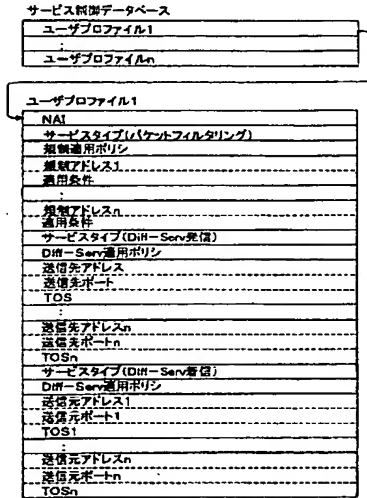 サービス制御データベース
ユーザプロファイル1
:
ユーザプロファイルn
ユーザプロファイル1
NAI
サービスタイプ(パケットフィルタリング)
規制適用ポリシ
規制アドレス1
適用条件
:
規制アドレスn
適用条件
サービスタイプ(Diff－Serv発信)
Diff－Serv適用ポリシ
送信先アドレス
送信先ポート
TOS
:
送信先アドレスn
送信先ポートn
TOSn
サービスタイプ(Diff－Serv着信)
Diff－Serv適用ポリシ
送信元アドレス1
送信元ポート1
TOS1
:
送信元アドレスn
送信元ポートn
TOSn